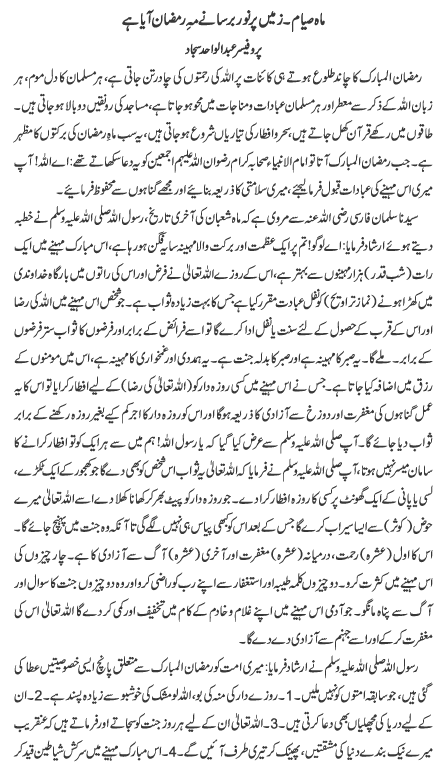 ماہ صیام۔ زمیں پر نور برسانے مہِ رمضان آیا ہے
پروفیسر عبدالواحد سجاد
رمضان المبارک کا چاند طلوع ہوتے ہی کائنات پر اللہ کی رحمتوں کی چادر تن جاتی ہے، ہر مسلمان کا دل موم، ہر
زبان اللہ کے ذکر سے معطر اور ہر مسلمان عبادات و مناجات میں محو ہو جاتا ہے، مساجد کی رونقیں دوبالا ہو جاتی ہیں۔
طاقوں میں رکھے قرآن کھل جاتے ہیں، سحر و افطار کی تیاریاں شروع ہو جاتی ہیں، یہ سب ماہِ رمضان کی برکتوں کا مظہر
ہے۔ جب رمضان المبارک آتا تو امام الانبیاء صحابہ کرام رضوان اللہ علیہم اجمعین کو یہ دعا سکھاتے تھے: اے اللہ! آپ
میری اس مہینے کی عبادات قبول فرما لیجئے، میری سلامتی کا ذریعہ بنایئے اور مجھے گناہوں سے محفوظ فرمایئے۔
سیدنا سلمان فارسی رضی اللہ عنہ سے مروی ہے کہ ماہ شعبان کی آخری تاریخ، رسول اللہ صلی اللہ علیہ وسلم نے خطبہ
دیتے ہوئے ارشاد فرمایا: اے لوگو! تم پر ایک عظمت اور برکت والا مہینہ سایہ فگن ہو رہا ہے، اس مبارک مہینے میں ایک
رات (شب قدر) ہزار مہینوں سے بہتر ہے، اس کے روزے اللہ تعالیٰ نے فرض اور اس کی راتوں میں بارگاہ خداوندی
میں کھڑا ہونے (نماز تراویح) کو نفل عبادت مقرر کیا ہے جس کا بہت زیادہ ثواب ہے۔ جو شخص اس مہینے میں اللہ کی رضا
اور اس کے قرب کے حصول کے لئے سنت یا نفل ادا کرے گا تو اسے فرائض کے برابر اور فرضوں کا ثواب ستر فرضوں
کے برابر۔ ملے گا۔ یہ صبر کا مہینہ ہے اور صبر کا بدلہ جنت ہے۔ یہ ہمدردی اور غمخواری کا مہینہ ہے، اس میں مومنوں کے
رزق میں اضافہ کیا جاتا ہے۔ جس نے اس مہینے میں کسی روزہ دار کو (اللہ تعالیٰ کی رضا) کے لیے افطار کرایا تو اس کا یہ
عمل گناہوں کی مغفرت اور دوزخ سے آزادی کا ذریعہ ہوگا اور اس کو روزہ دار کا اجر کم کیے بغیر روزہ رکھنے کے برابر
ثواب دیا جائے گا۔ آپ صلی اللہ علیہ وسلم سے عرض کیا گیا کہ یا رسول اللہ! ہم میں سے ہر ایک کو تو افطار کرانے کا
سامان میسر نہیں ہوتا، آپ صلی اللہ علیہ وسلم نے فرمایا کہ اللہ تعالیٰ یہ ثواب اس شخص کو بھی دے گا جو کھجور کے ایک ٹکڑے،
لسی یا پانی کے ایک گھونٹ پر کسی کا روزہ افطار کرا دے۔ جو روزہ دار کو پیٹ بھر کر کھانا کھلا دے اسے اللہ تعالیٰ میرے
حوض (کوثر) سے ایسا سیراب کرے گا جس کے بعد اس کو کبھی پیاس ہی نہیں لگے گی تا آنکہ وہ جنت میں پہنچ جائے گا۔
اس کا اول (عشرہ) رحمت، درمیانہ (عشرہ) مغفرت اور آخری (عشرہ) آگ سے آزادی کا ہے۔ چار چیزوں کی
اس مہینے میں کثرت کرو۔ دو چیزوں کلمہ طیبہ اور استغفار سے اپنے رب کو راضی کرو اور وہ دو چیزوں جنت کا سوال اور
آگ سے پناہ مانگو۔ جو آدمی اس مہینے میں اپنے غلام و خادم کے کام میں تخفیف اور کمی کر دے گا اللہ تعالیٰ اس کی
مغفرت کر کے اور اسے جہنم سے آزادی دے دے گا۔
رسول اللہ صلی اللہ علیہ وسلم نے ارشاد فرمایا: میری امت کو رمضان المبارک سے متعلق پانچ ایسی خصوصیتیں عطا کی
گئی ہیں، جو سابقہ امتوں کو نہیں ملیں۔ 1۔ روزے دار کی منہ کی بو، اللہ کو مشک کی خوشبو سے زیادہ پسند ہے۔ 2۔ ان
کے لیے دریا کی مچھلیاں بھی دعا کرتی ہیں۔ 3۔ اللہ تعالیٰ ان کے لیے ہر روز جنت کو سجاتے اور فرماتے ہیں کہ عنقریب
میرے نیک بندے دنیا کی مشقتیں، پھینک کر تیری طرف آئیں گے۔ 4۔ اس مبارک مہینے میں سرکش شیاطین قید کر